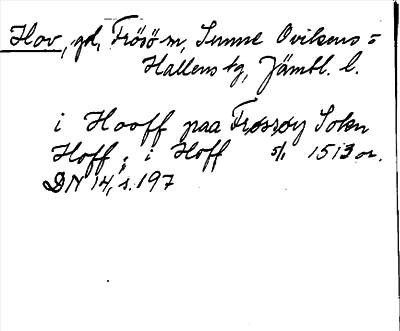 Hov, gd, Frösö sn, Sunne Ovikens =
Hallens tg, Jämtl. l.
i Hooff paa Frøsøy Sokn
Hoff ; i Hoff 5/1 1513 or.
DN 14, s. 197